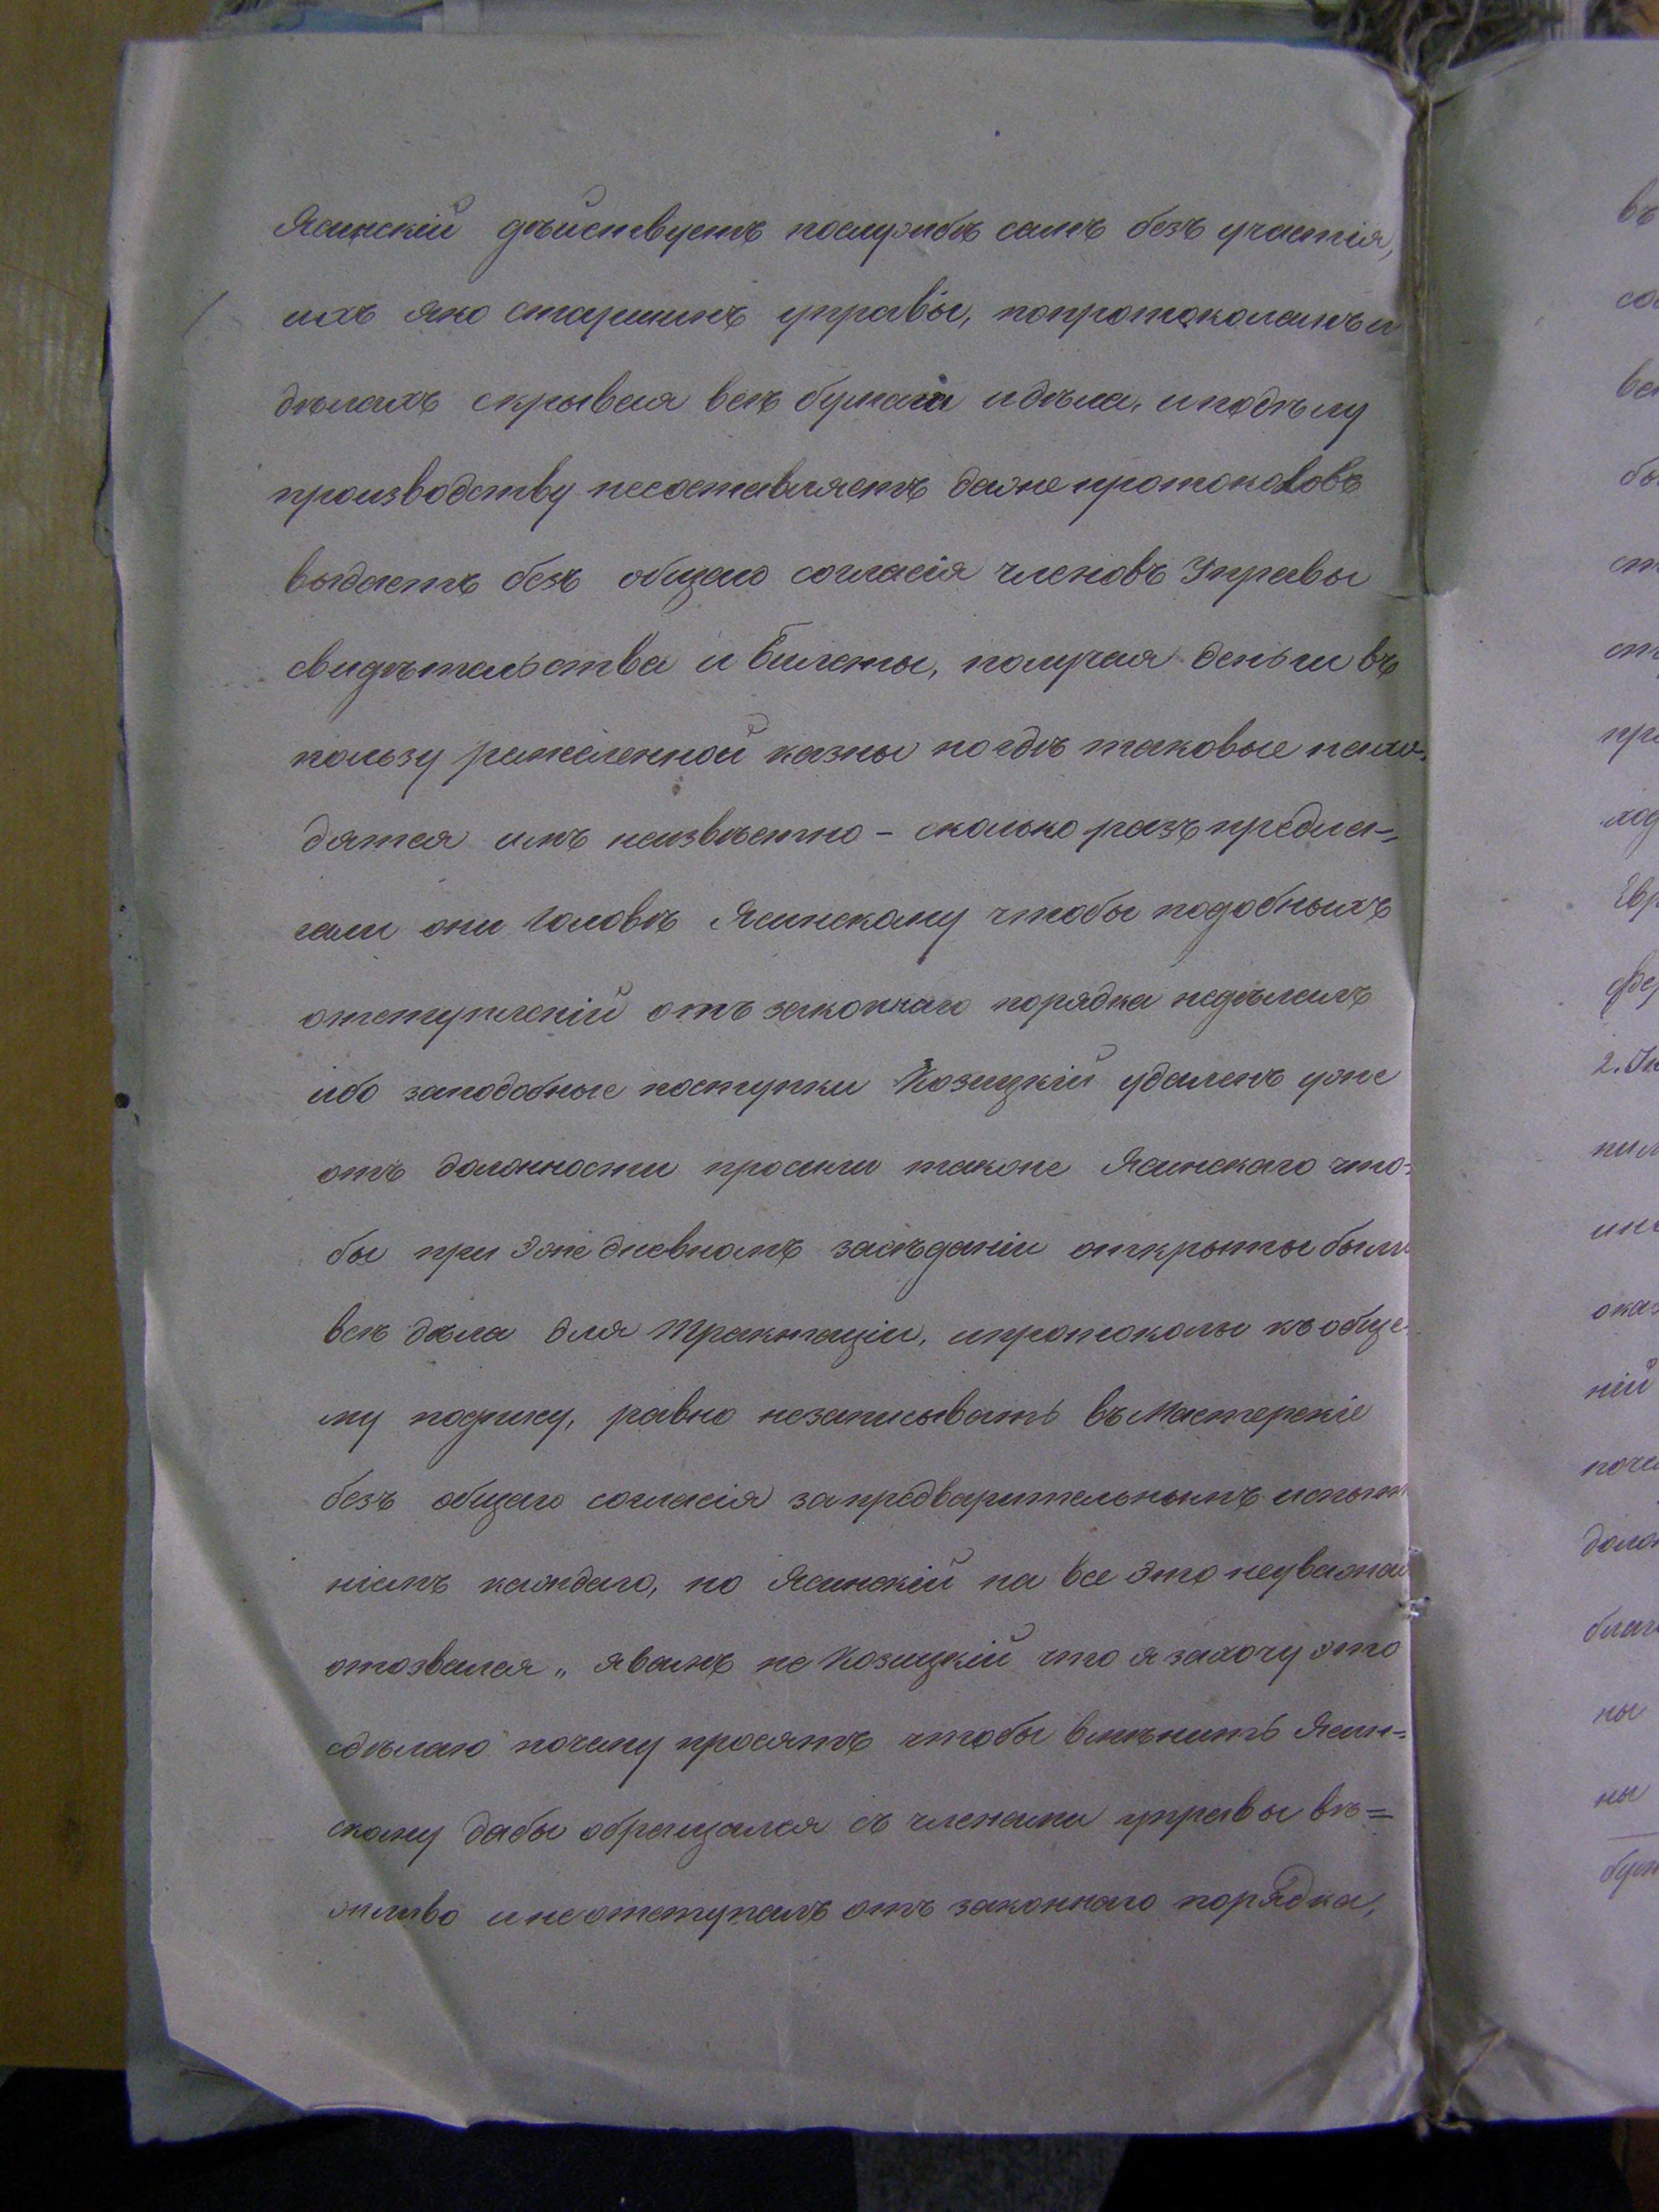 Ясинскій дѣйствуетъ послужбѣ самъ безъ участія,
ихъ яко старшинъ управы, попротоколамъ и
дѣламъ скрывая всѣ бумаги и дѣла, и подѣлу
производству несоставляетъ даже протоколовъ
выдаетъ безъ общаго согласія членовъ Управы
свидѣтельства и билеты, получая деньги въ
пользу ремесленной казны но гдѣ таковые нахо-
дятся имъ неизвѣстно – сколько разъ предла-
гали они Головѣ Ясинскому чтобы подобныхъ
отступленій отъ законнаго порядка недѣлалъ
ибо заподобные поступки Козицкій удаленъ уже
отъ должности просили также Ясинскаго что-
бы при Эжедневномъ засѣданіи открыты были
всѣ дѣла для трактаціи, и протоколы къ обще-
му подпису, равно незаписывать въ Мастерскіе
безъ общаго согласія запредварительнымъ испыта
ніемъ каждаго, но Ясинскій на все Это неуважая
отозвался „ явамъ не Козицкій что я захочу это
сдѣлаю" почему просятъ чтобы вмѣнить Ясин=
скому дабы обращался съ членами управы вѣ=
жливо и неотступалъ отъ законнаго порядка,
въ
со
вс
бы
ст
ст
пр
ход
Евр
фер
2.
пил
ока
ній
поче
долж
благ
ны
ны
бум